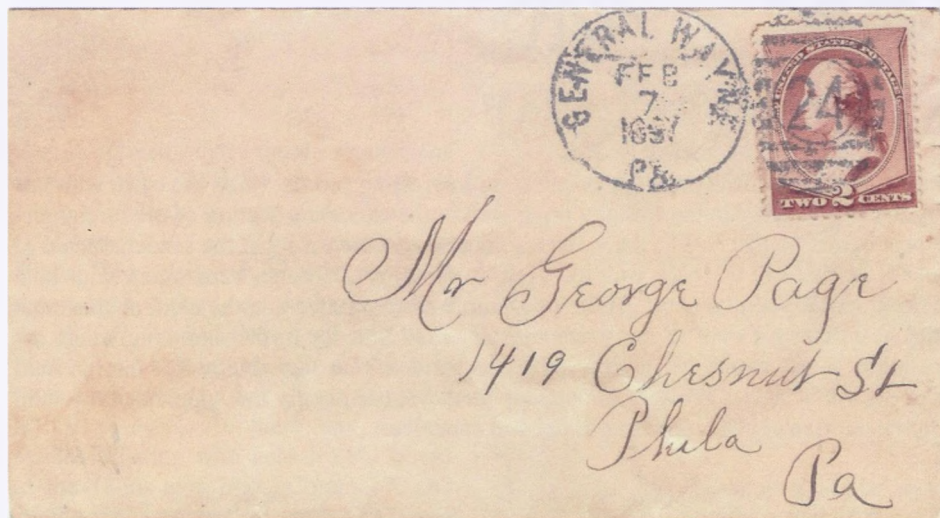 GENERAL WAYNE
FEB
7
1887
PA.
UNITED STATES POSTAGE
24
TWO 2 CENTS
Mr George Page
1419 Chesnut St
Phila
Pa